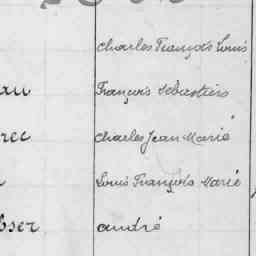 Charles François Louis
au François Sébastien
rec Charles Jean Marie
Louis François Marie
sser andré